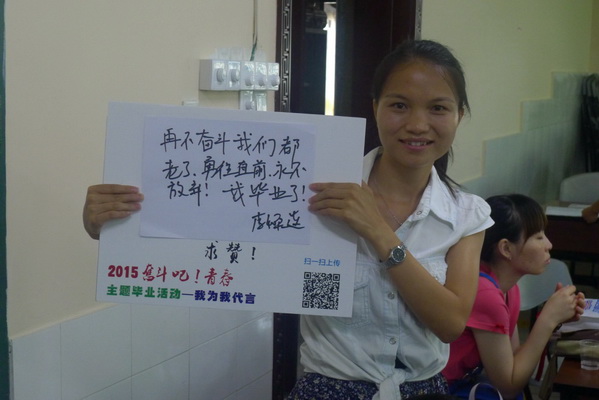 再不奋斗我们都
老了,勇往直前,永不
放弃! 我毕业了!
求赞!
扫一扫上传
2015 奋斗吧!青春
主题毕业活动—我为我代言